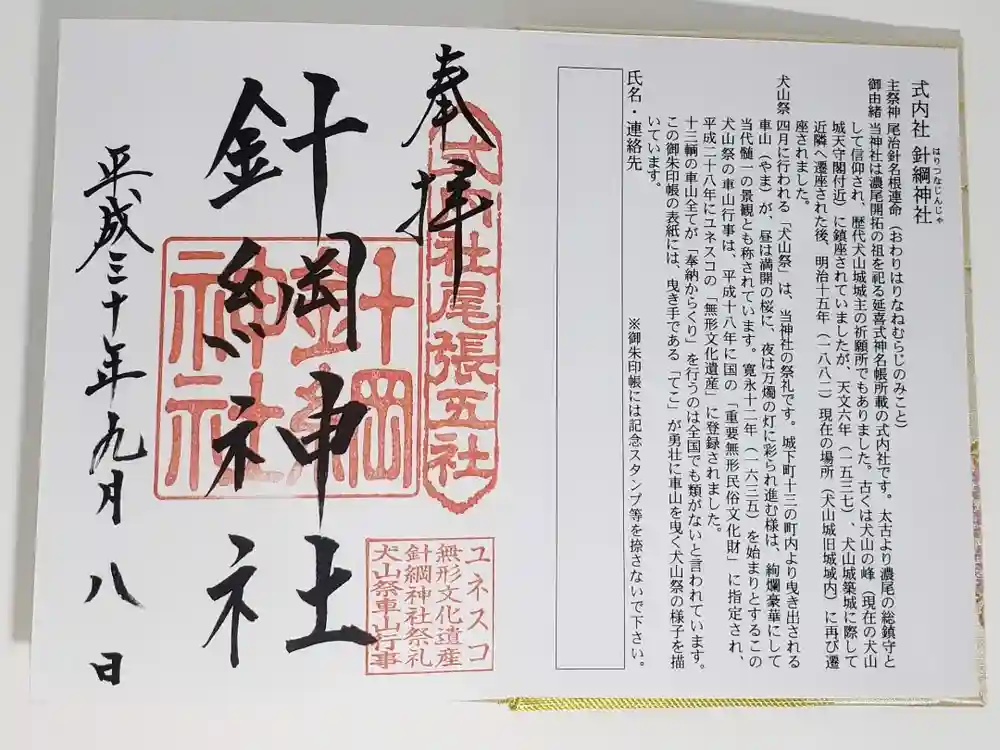 式内社 針綱神社
はりつなじんじゃ
主祭神 尾治針名根連命（おわりはりなねむらじのみこと）
御由緒 当神社は濃尾開拓の祖を祀る延喜式神名帳所載の式内社です。太古より濃尾の総鎮守と
して信仰され、歴代犬山城城主の祈願所でもありました。古くは犬山の峰（現在の犬山
城天守閣付近）に鎮座されていましたが、天文六年（一五三七）、犬山城築城に際して
近隣へ遷座された後、明治十五年（一八八二）現在の場所（犬山城旧城域内）に再び遷
座されました。
犬山祭 四月に行われる「犬山祭」は、当神社の祭礼です。城下町十三の町内より曳き出される
車山（やま）が、昼は満開の桜に、夜は万燭の灯に彩られ進む様は、絢爛豪華にして
当代髄一の景観とも称されています。寛永十二年（一六三五）を始まりとするこの
犬山祭の車山行事は、平成十八年に国の「重要無形民俗文化財」に指定され、
平成二十八年にユネスコの「無形文化遺産」に登録されました。
十三輌の車山全てが「奉納からくり」を行うのは全国でも類がないと言われています。
この御朱印帳の表紙には、曳き手である「てこ」が勇壮に車山を曳く犬山祭の様子を描
いています。
※御朱印帳には記念スタンプ等を捺さないで下さい。
氏名・連絡先
奉拝
式内社尾張五社
針綱神社
針綱
神社
ユネスコ
無形文化遺産
針綱神社祭礼
犬山祭車山行事
平成三十年九月八日